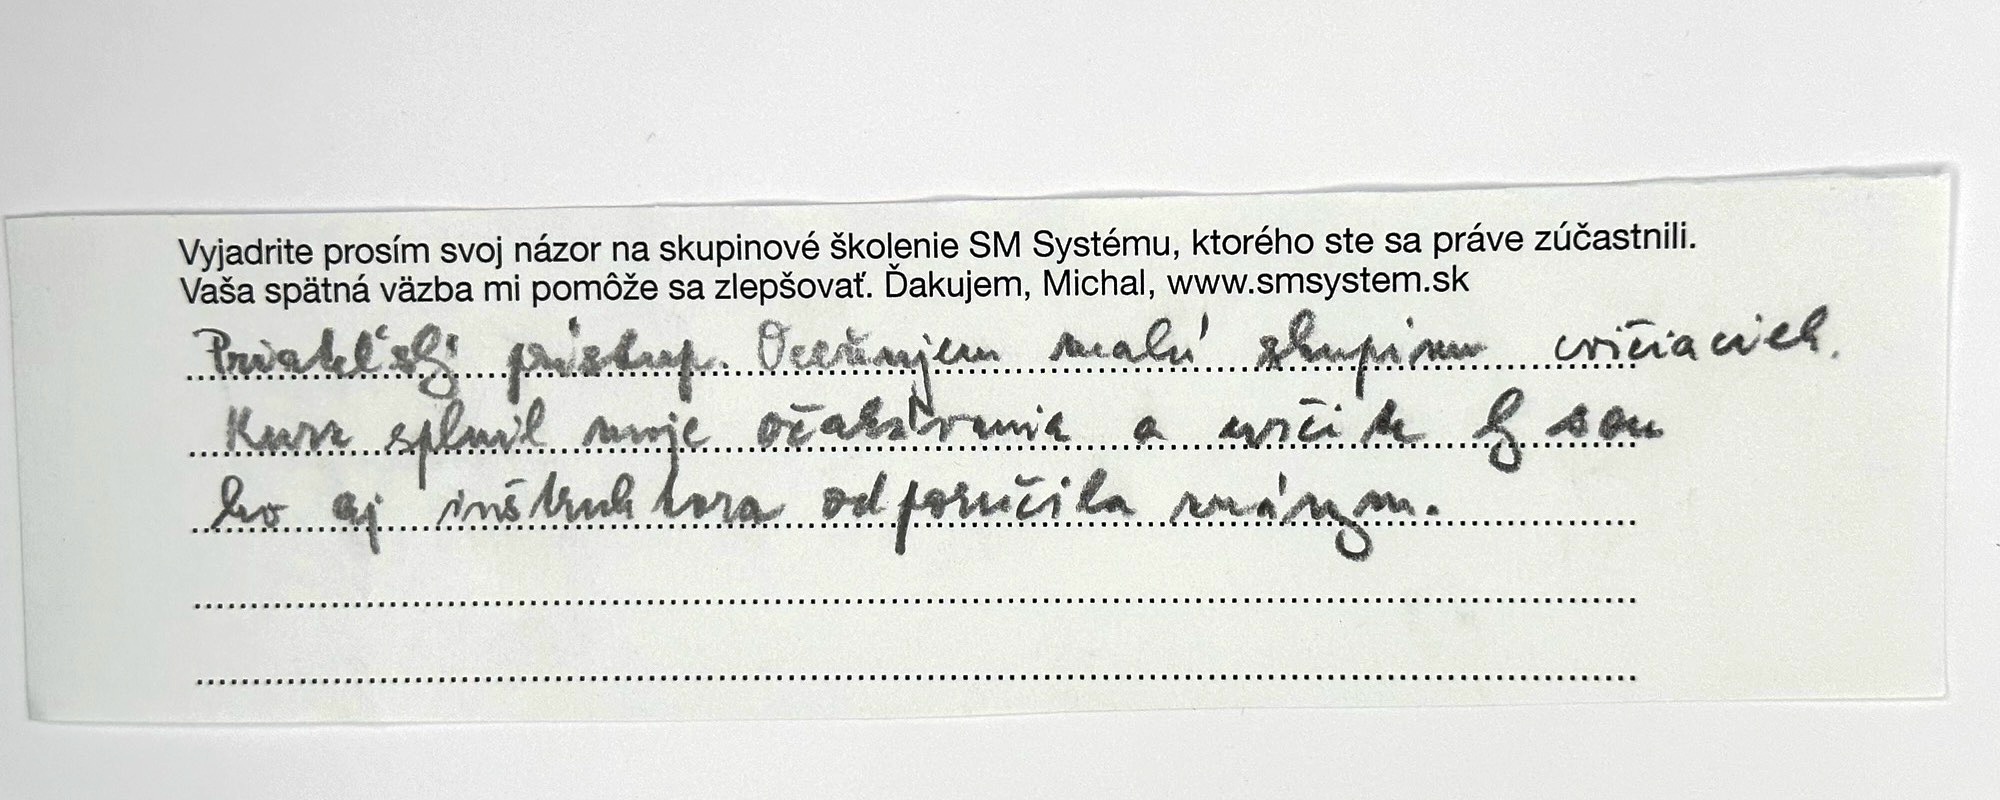 Vyjadrite prosím svoj názor na skupinové školenie SM Systému, ktorého ste sa práve zúčastnili.
Vaša spätná väzba mi pomôže sa zlepšovať. Ďakujem, Michal, www.smsystem.sk
Priateľský prístup. Oceňujem malú skupinu cvičiacich.
Kurz splnil moje očakávania a určite by som
ho aj inštruktora odporučila známym.